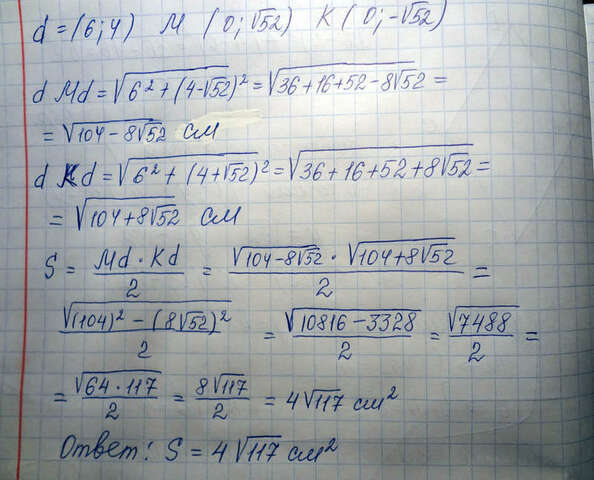 d = (6; 4) M (0; √52) K (0; -√52)
d Md = √(6² + (4-√52)²) = √(36+16+52-8√52) =
= √(104-8√52) см
d Kd = √(6² + (4+√52)²) = √(36+16+52+8√52) =
= √(104+8√52) см
S = Md · Kd / 2 = √(104-8√52) · √(104+8√52) / 2 =
√((104)² - (8√52)²) / 2 = √(10816-3328) / 2 = √7488 / 2 =
= √(64·117) / 2 = 8√117 / 2 = 4√117 см²
Ответ: S = 4√117 см²